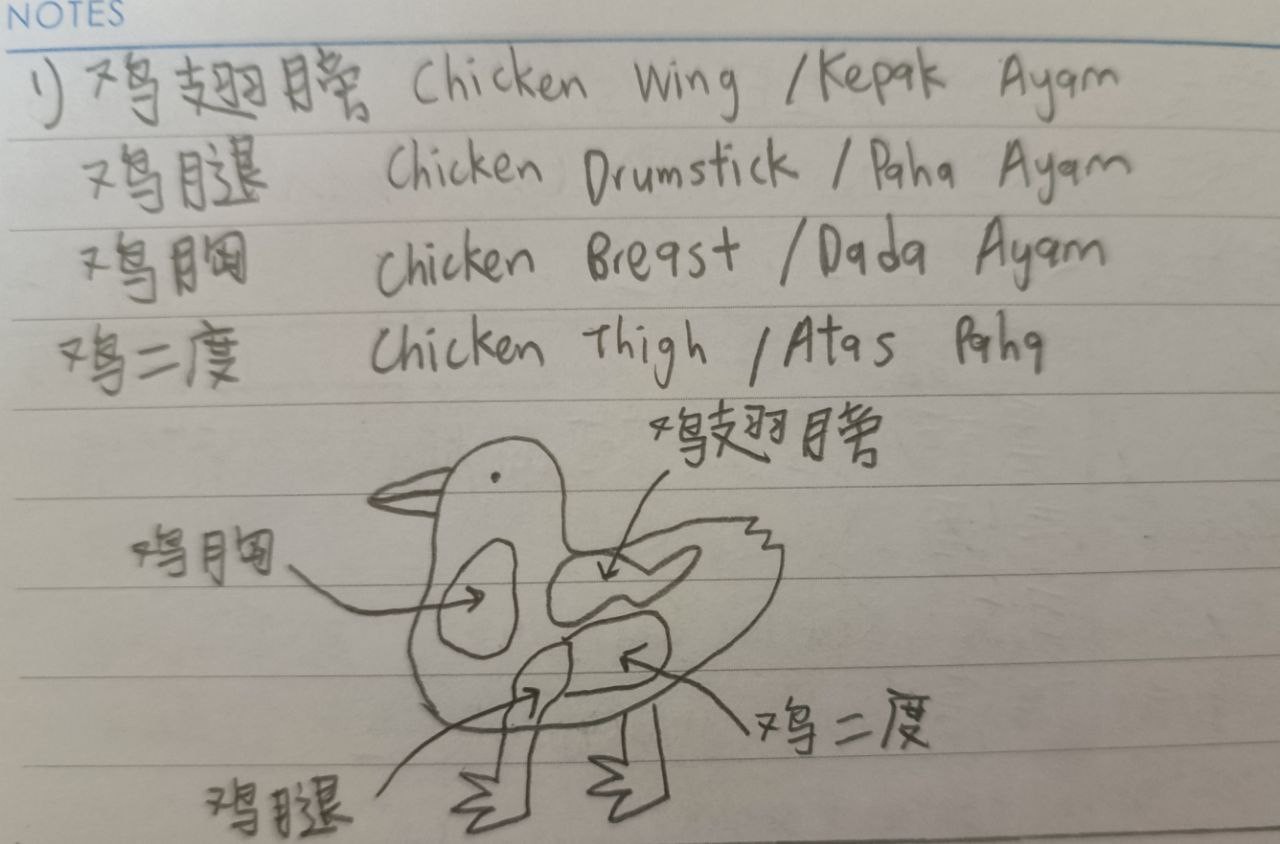 NOTES
1) 鸡翅膀 Chicken Wing / Kepak Ayam
鸡腿 Chicken Drumstick / Paha Ayam
鸡胸 Chicken Breast / Dada Ayam
鸡二度 Chicken Thigh / Atas Paha
鸡翅膀
鸡胸
鸡二度
鸡腿